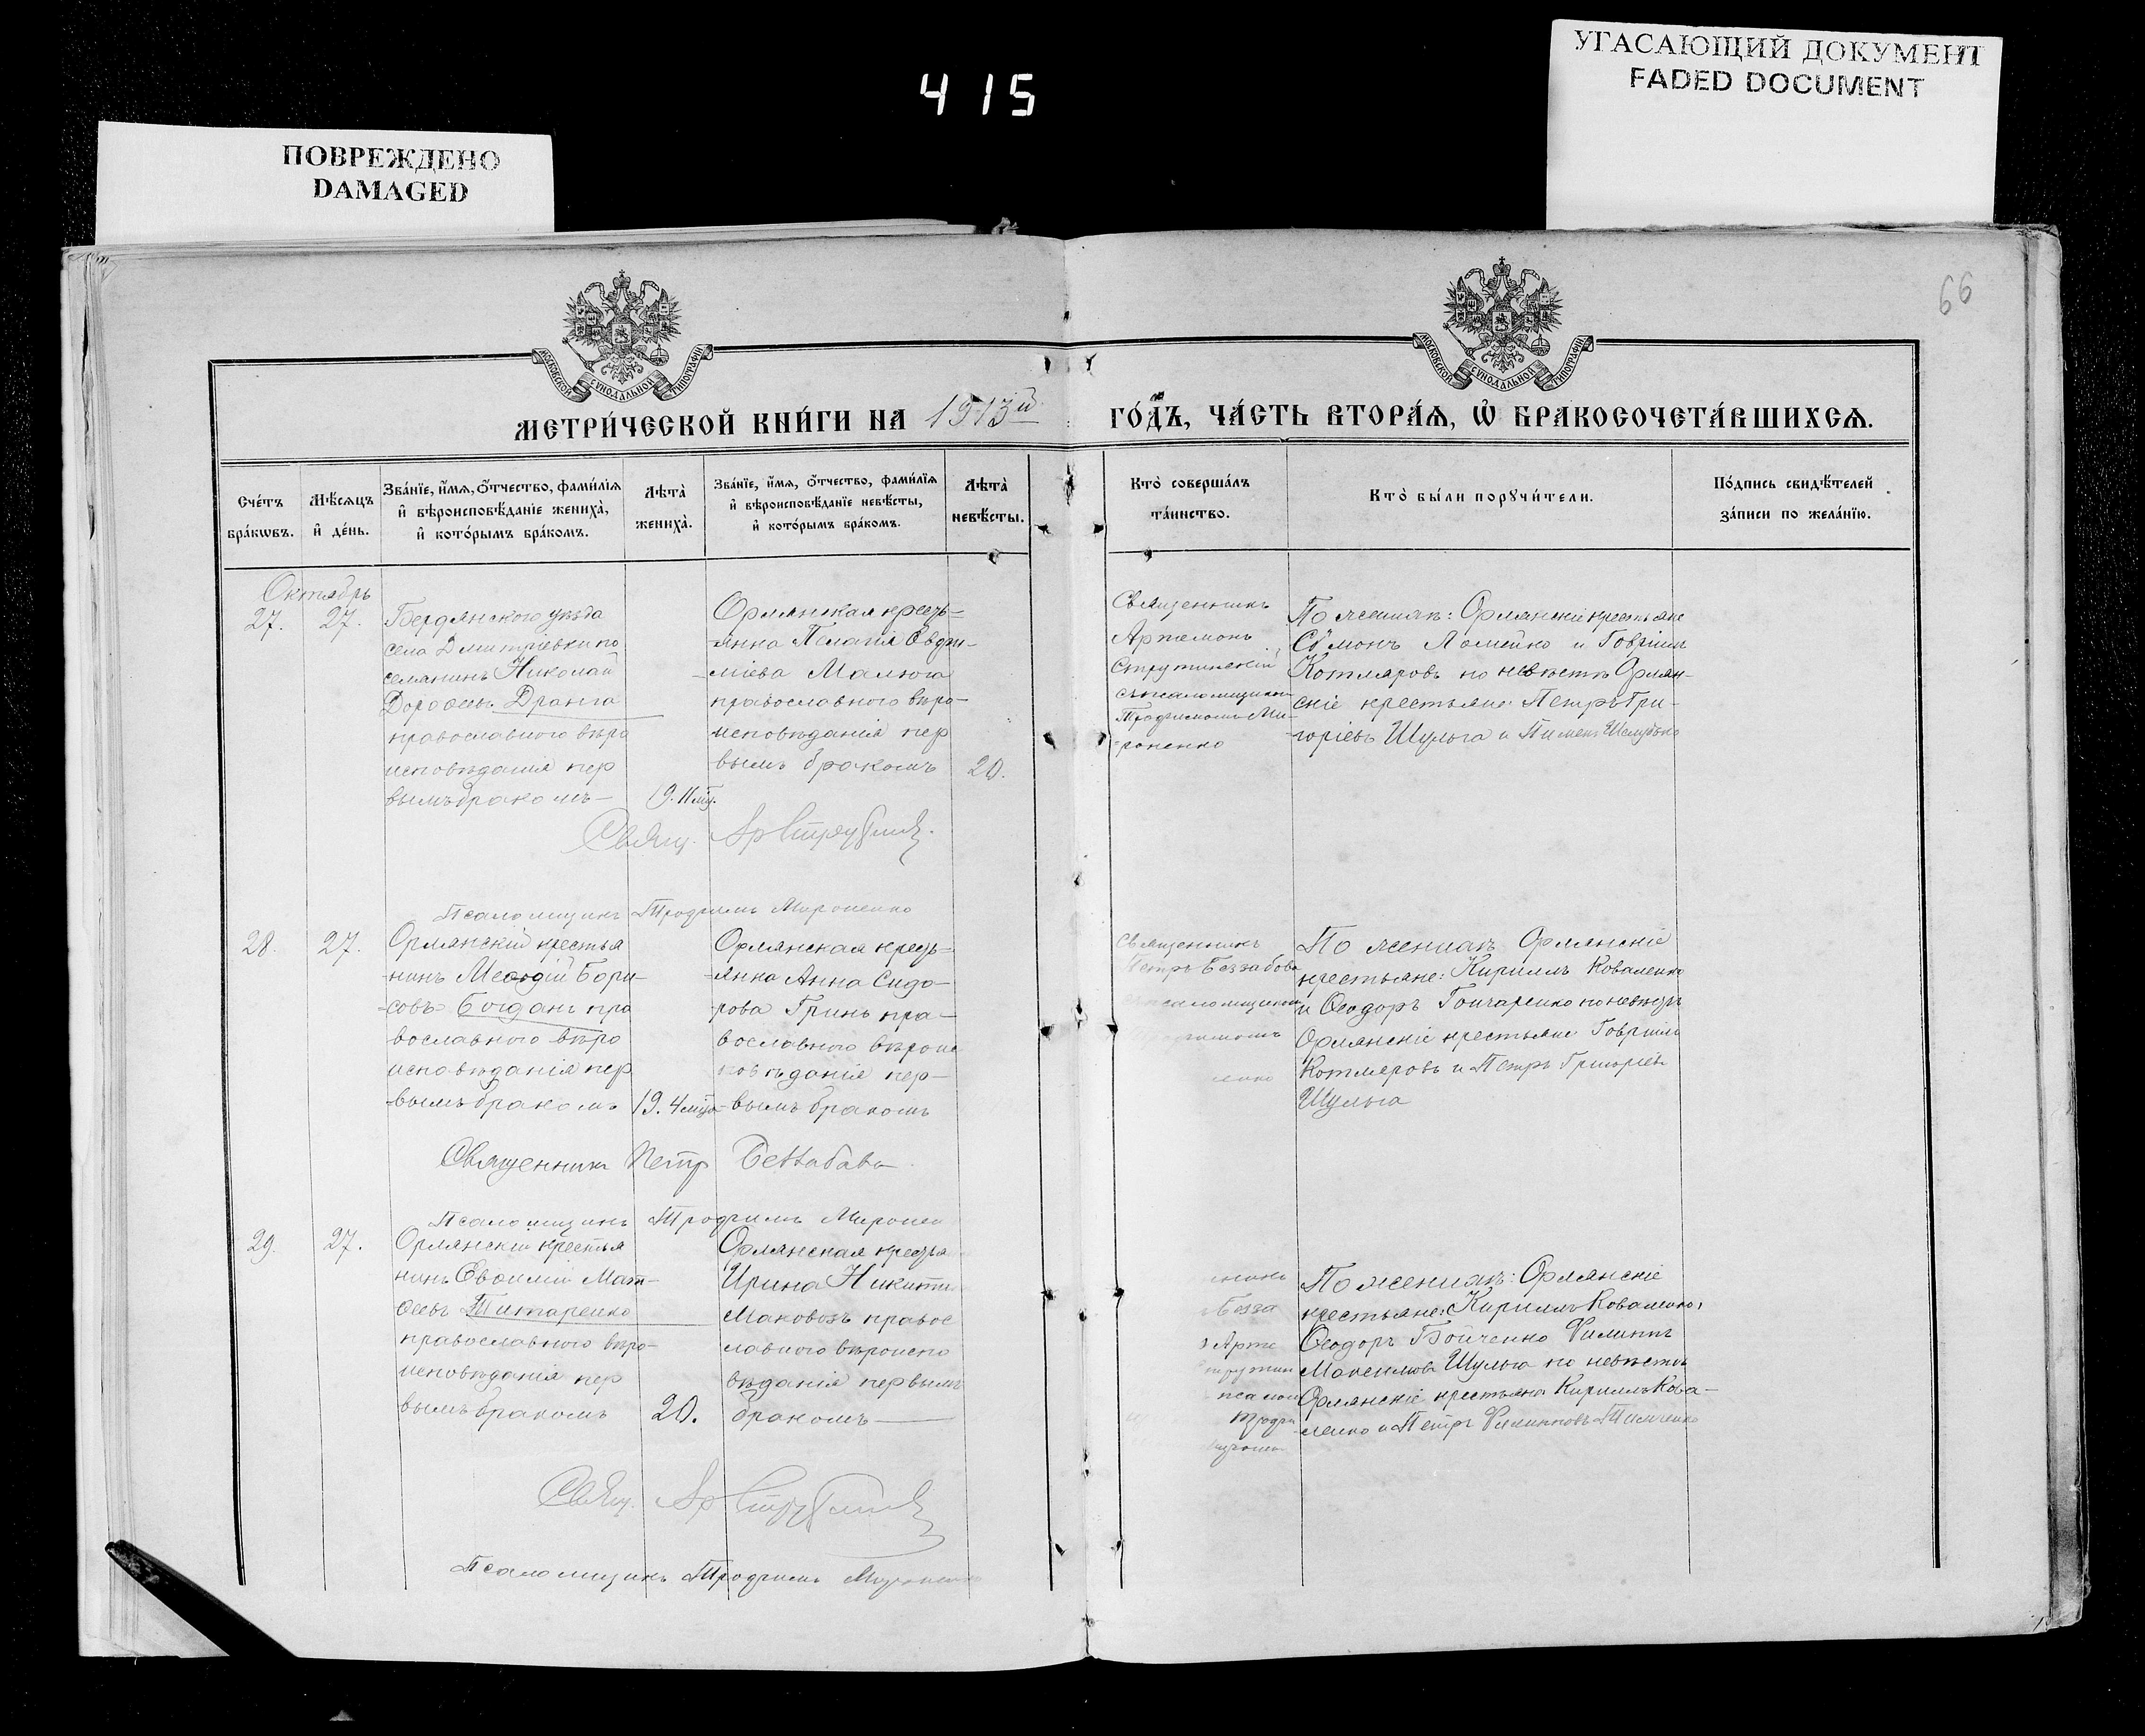 415
УГАСАЮЩИЙ ДОКУМЕНТ
FADED DOCUMENT
ПОВРЕЖДЕНО
DAMAGED
66
МОСКОВСКОЙ СУНОДАЛЬНОЙ ТИПОГРАФІИ
МОСКОВСКОЙ СУНОДАЛЬНОЙ ТИПОГРАФІИ
МЕТРИ́ЧЕСКОЙ КНИ́ГИ НА 1913й
ГО́ДЪ, ЧА́СТЬ ВТОРА́Ѧ, Ѡ БРАКОСОЧЕТА́ВШИХСѦ.
Сче́тъ
бра́кѡвъ.
Мѣ́сяцъ
и҆ де́нь.
Зва́нїе, и҆́мѧ, ѻ҆́тчество, фами́лїѧ
и҆ вѣроисповѣ́данїе жениха̀,
и҆ кото́рымъ бра́комъ.
Лѣта̀
жениха̀.
Зва́нїе, и҆́мѧ, ѻ҆́тчество, фами́лїѧ
и҆ вѣроисповѣ́данїе невѣ́сты,
и҆ кото́рымъ бра́комъ.
Лѣта̀
невѣ́сты.
Кто̀ соверша́лъ
та́инство.
Кто̀ бы́ли порꙋчи́тели.
По́дпись свидѣ́телей
за́писи по жела́нїю.
Октябрь
27.
27.
Бердянского уѣзда
села Дмитріевки по
селянинъ Николай
Дорофеевъ Дранга
православного вѣро
исповѣданія пер
вымъ бракомъ
19. 11 мц.
Орлянская кресть-
-янка Пелагія Евфи-
-міева Малюга
православного вѣро-
исповѣданія пер
вымъ бракомъ
20.
Священникъ
Артемонъ
Струтинскій
съ псаломщикомъ
Трофимомъ Ми-
-роненко
По женихѣ: Орлянскіе крестьяне
Сѵмонъ Ломейко и Гавріилъ
Котляровъ по невѣстѣ Орлян-
скіе крестьяне Петръ Гри-
-горіевъ Шульга и Пименъ
Свящ. Ар Струтинскій
Псаломщикъ Трофимъ Мироненко
28.
27.
Орлянскій крестья
-нинъ Меѳодій Бори-
-совъ Богданъ пра
вославного вѣро
исповѣданія пер
вымъ бракомъ
19. 4 мца
Орлянская кресть-
-янка Анна Сидо-
-рова Гринь пра-
вославного вѣроис
повѣданія пер-
-вымъ бракомъ
Священникъ
Петръ Беззабава
псаломщикомъ
По женихѣ Орлянскіе
крестьяне: Кириллъ Коваленко
и Ѳеодоръ Гончаренко по невѣстѣ
Орлянскіе крестьяне Гавріилъ
Котляровъ и Петръ Григоріевъ
Шульга
Священникъ Петр Беззабава
Псаломщикъ Трофимъ Миронен
29.
27.
Орлянскій крестья
нинъ Евѳимій Мат-
ѳеевъ Титаренко
православного вѣро-
исповѣданія пер
вымъ бракомъ
20.
Орлянская крестья
Ирина Никити
Маковозъ правос
лавного вѣроиспо
вѣданія первымъ
бракомъ
Безза
Арте
псалом
Трофи
По женихѣ: Орлянскіе
крестьяне: Кириллъ Коваленко,
Ѳеодоръ Бойченко Филиппъ
Максимовъ Шульга по невѣстѣ
Орлянскіе крестьяне Кириллъ Кова-
ленко и Петръ Филипповъ Тимченко
Свящ. Ар Струтинскій
Псаломщикъ Трофимъ Мироненко